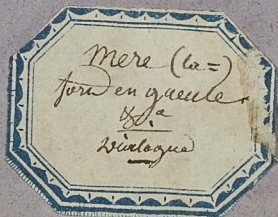 Mere (la=)
forn en gueule
&.a
Dialogue